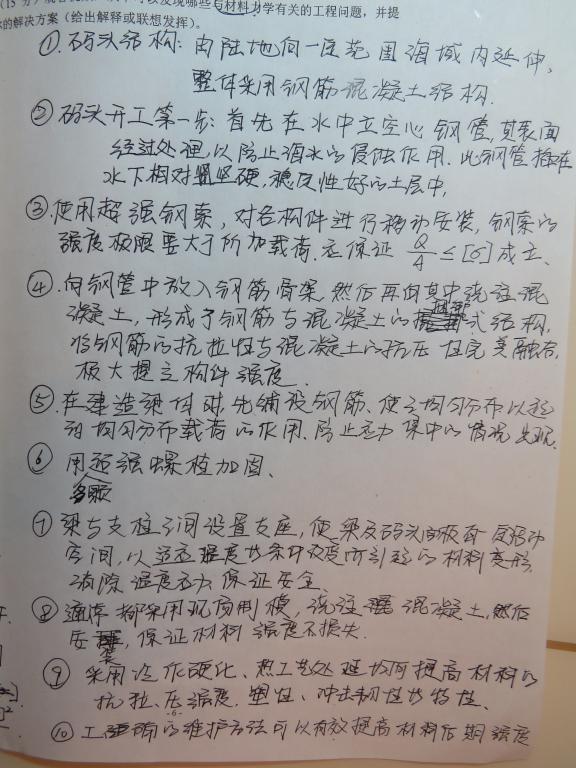 可以发现哪些与材料力学有关的工程问题，并提
的解决方案（给出解释或联想发挥）。
①.码头结构：由陆地向一定范围海域内延伸，
整体采用钢筋混凝土结构.
②码头开工第一步：首先在水中立空心钢管，其表面
经过处理，以防止海水的侵蚀作用.此钢管插在
水下相对坚硬，稳定性好的土层中.
③.使用超强钢索，对各构件进行移动安装，钢索的
强度极限要大于所加载荷.应保证 Q/A ≤[σ]成立.
④.向钢管中放入钢筋骨架，然后再向其中浇注混
凝土，形成了钢筋与混凝土的式结构，
将钢筋的抗拉性与混凝土的抗压性完美融合，
极大提高构件强度.
⑤.在建造梁体时，先铺设钢筋.使之均匀分布以起
到均匀分布载荷的作用.防止应力集中的情况出现.
⑥ 用超强螺栓加固.
⑦ 梁与支柱之间设置支座，使梁及码头面板有
空间，以适应温度等条件改变所引起的材料变形，
消除温度应力，保证安全.
⑧ 通常都采用现场制模，浇注混凝土，然后
安装，保证材料强度不损失.
⑨ 采用冷作硬化、热工艺处理均可提高材料的
抗拉、压强度.塑性、冲击韧性等特性.
-6-
⑩ 正确的维护方法可以有效提高材料后期强度